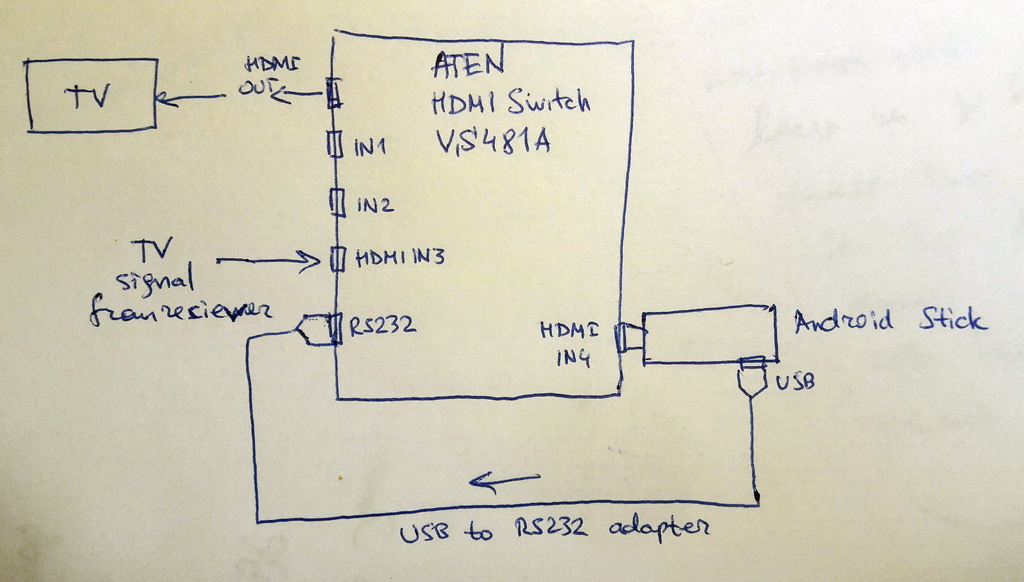 TV
HDMI
OUT
ATEN
HDMI Switch
VS481A
IN1
IN2
TV
signal
from resiewer
HDMI IN3
RS232
HDMI
IN4
Android Stick
USB
USB to RS232 adapter